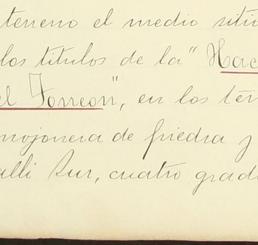 terreno el medio situ
los titulos de la "Hac
el Torreon", en los tér
mojonera de piedra y
alli Sur, cuatro grad